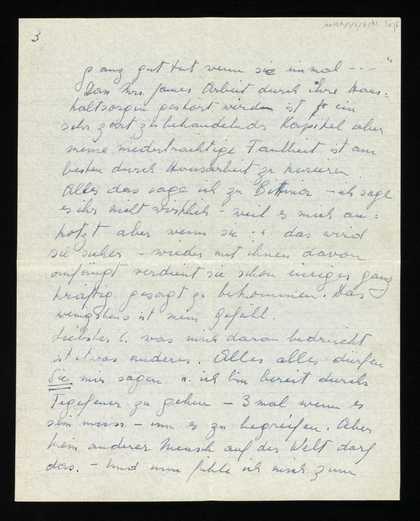 3
ganz gut tut wenn sie einmal - - - "
Dass Mrs. James Arbeit durch ihre Haus-
haltsorgen gestört werden ist ja ein
sehr zart zu behandelndes Kapitel aber
meine niederträchtige Faulheit ist am
besten durch Hausarbeit zu kurieren.
Alles das sage ich zu - ich sage
es ihr nicht wirklich - weil es mich an-
kotzt aber wenn sie das wird
sie sicher - wieder mit ihnen davon
anfängt verdient sie schon einiges ganz
kräftig gesagt zu bekommen. Das
wenigstens ist mein Gefühl.
Liebster L. was mich daran bedrückt
ist etwas anderes. Alles alles dürfen
Sie mir sagen u. ich bin bereit durchs
Fegefeuer zu gehen - 3 mal wenn es
sein muss - um es zu begreifen. Aber
kein anderer Mensch auf der Welt darf
das. - Und nun fühle ich mich zum